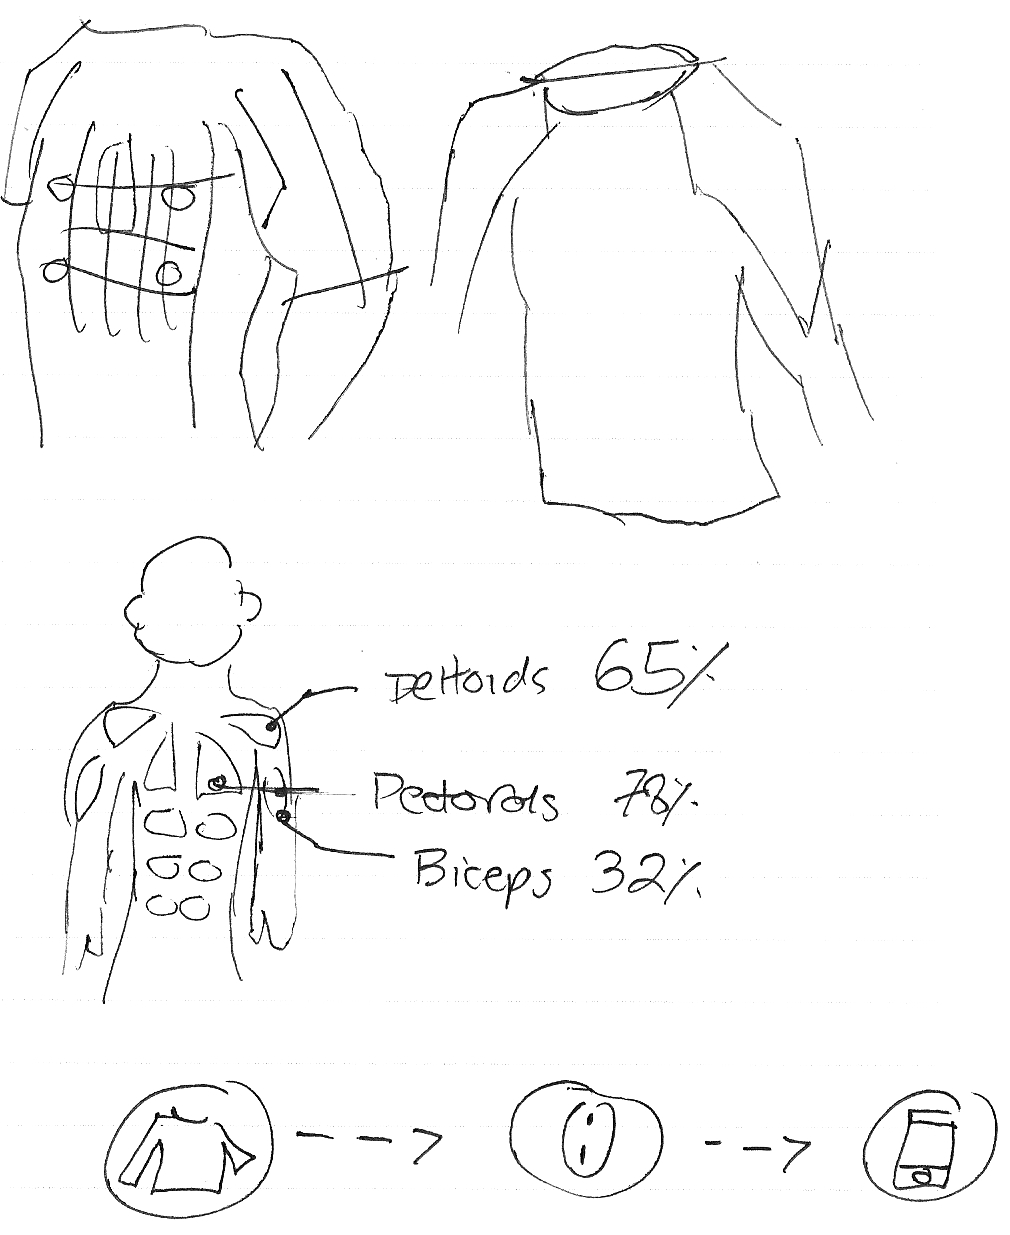 Deltoids 65%
Pectorals 78%
Biceps 32%